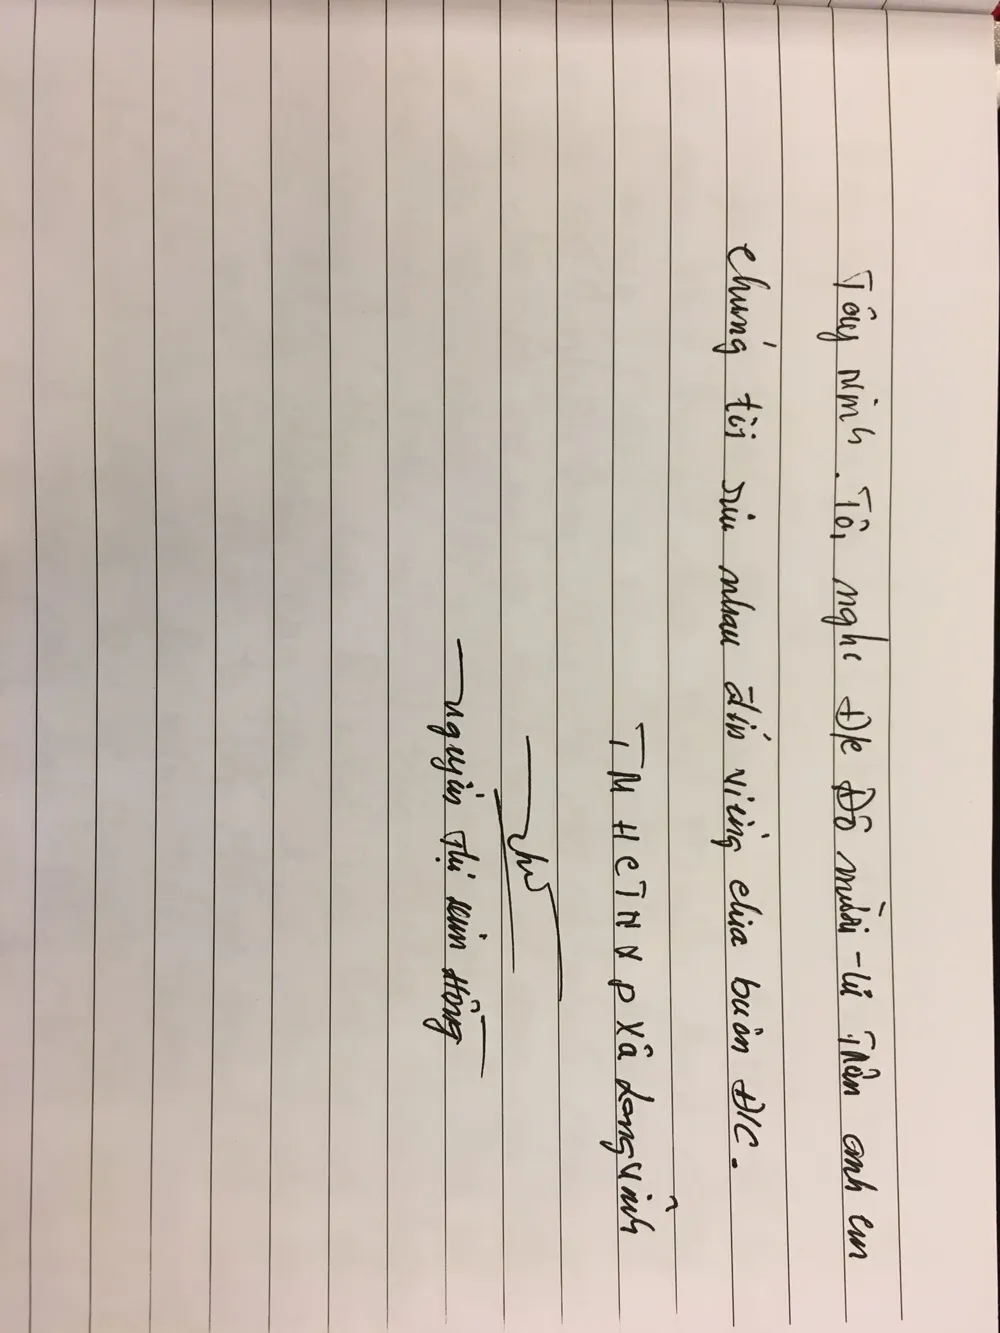 Tây Ninh. Tôi nghe Đ/c Đỗ mười - từ Trần anh em
chúng tôi rủu nhau đến viếng chia buồn Đ/C.
TM HCTNNP Xã Long Vĩnh
Nguyễn Thị Kim Hồng